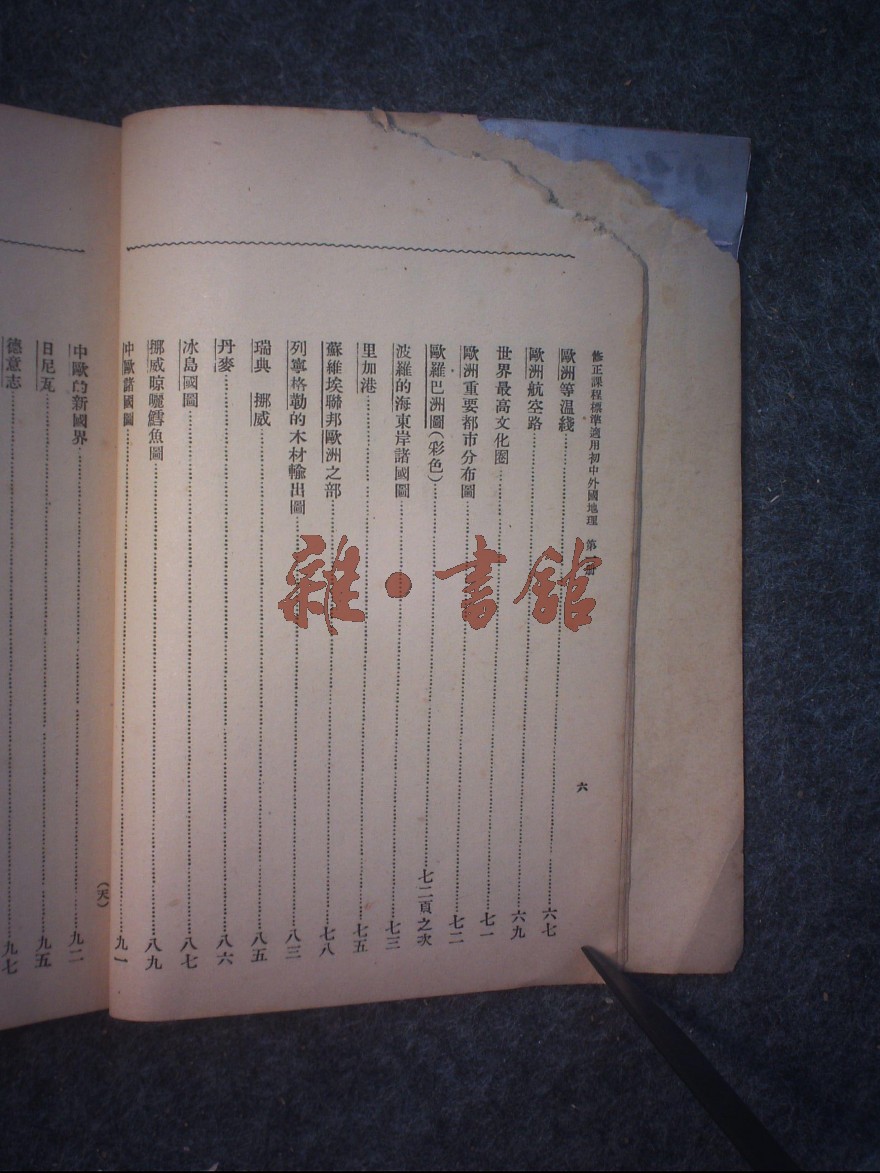 修正課程標準適用初中外國地理 第 冊
六
歐洲等温綫 六七
歐洲航空路 六九
世界最高文化圏 七一
歐洲重要都市分布圖 七二
歐羅巴洲圖(彩色) 七二頁之次
波羅的海東岸諸國圖 七三
里加港 七五
蘇維埃聯邦歐洲之部 七八
列寧格勒的木材輸出圖 八三
瑞典 挪威 八五
丹麥 八六
冰島國圖 八七
挪威晾曬鱈魚圖 八九
中歐諸國圖 九一
(天)
中歐的新國界 九二
日尼瓦 九五
德意志 九七
雜·書館